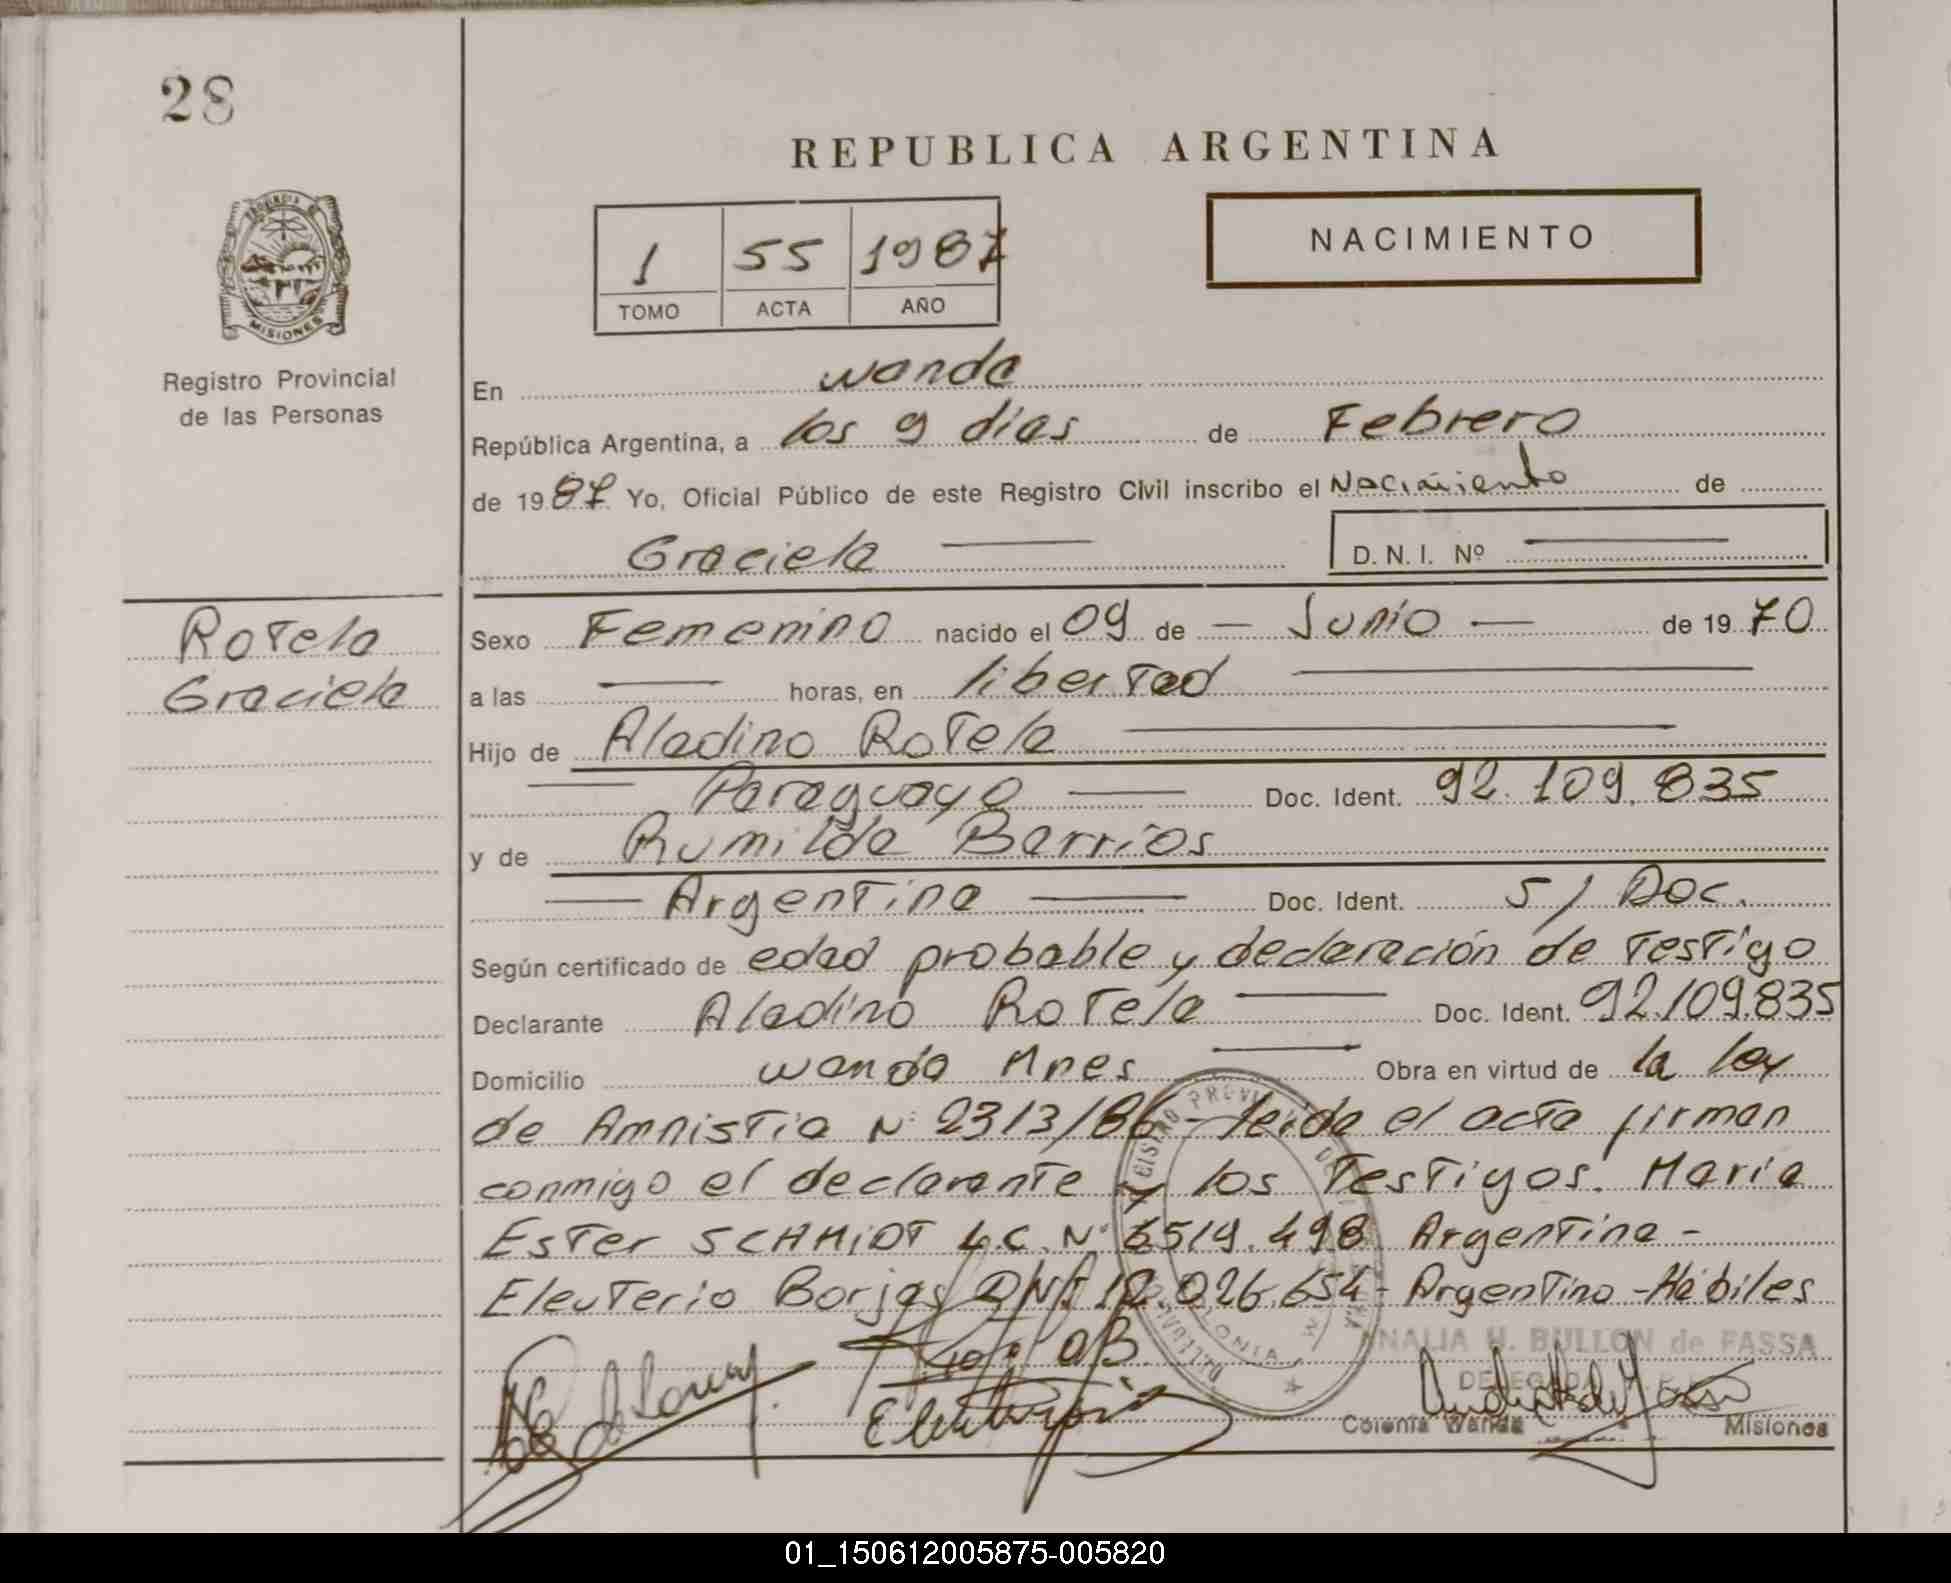 28
REPUBLICA ARGENTINA
PROVINCIA DE
MISIONES
Registro Provincial
de las Personas
NACIMIENTO
1 55 1987
TOMO ACTA AÑO
En wanda
República Argentina, a los 9 días de Febrero
de 1987 Yo, Oficial Público de este Registro Civil inscribo el Nacimiento de
Graciela D.N.I. Nº
Rotela
Graciela
Sexo Femenino nacido el 09 de Junio de 1970
a las horas, en libertad
Hijo de Aladino Rotela
Paraguaya Doc. Ident. 92.109.835
y de Rumilda Barrios
Argentina Doc. Ident. S/Doc.
Según certificado de edad probable y declaración de Testigo
Declarante Aladino Rotela Doc. Ident. 92.109.835
Domicilio wanda Mnes Obra en virtud de la ley
de Amnistia N: 2313/86 - leida el acta firman
conmigo el declarante y los Testigos. Maria
Ester SCHMIDT L.C. Nº 6519.498 Argentina -
Eleuterio Borjas DNI 12.026.654 - Argentino - Hábiles
ANALIA H. BULLON de FASSA
DELEGADA R.P.P.
Colonia Wanda Misiones
01_150612005875-005820